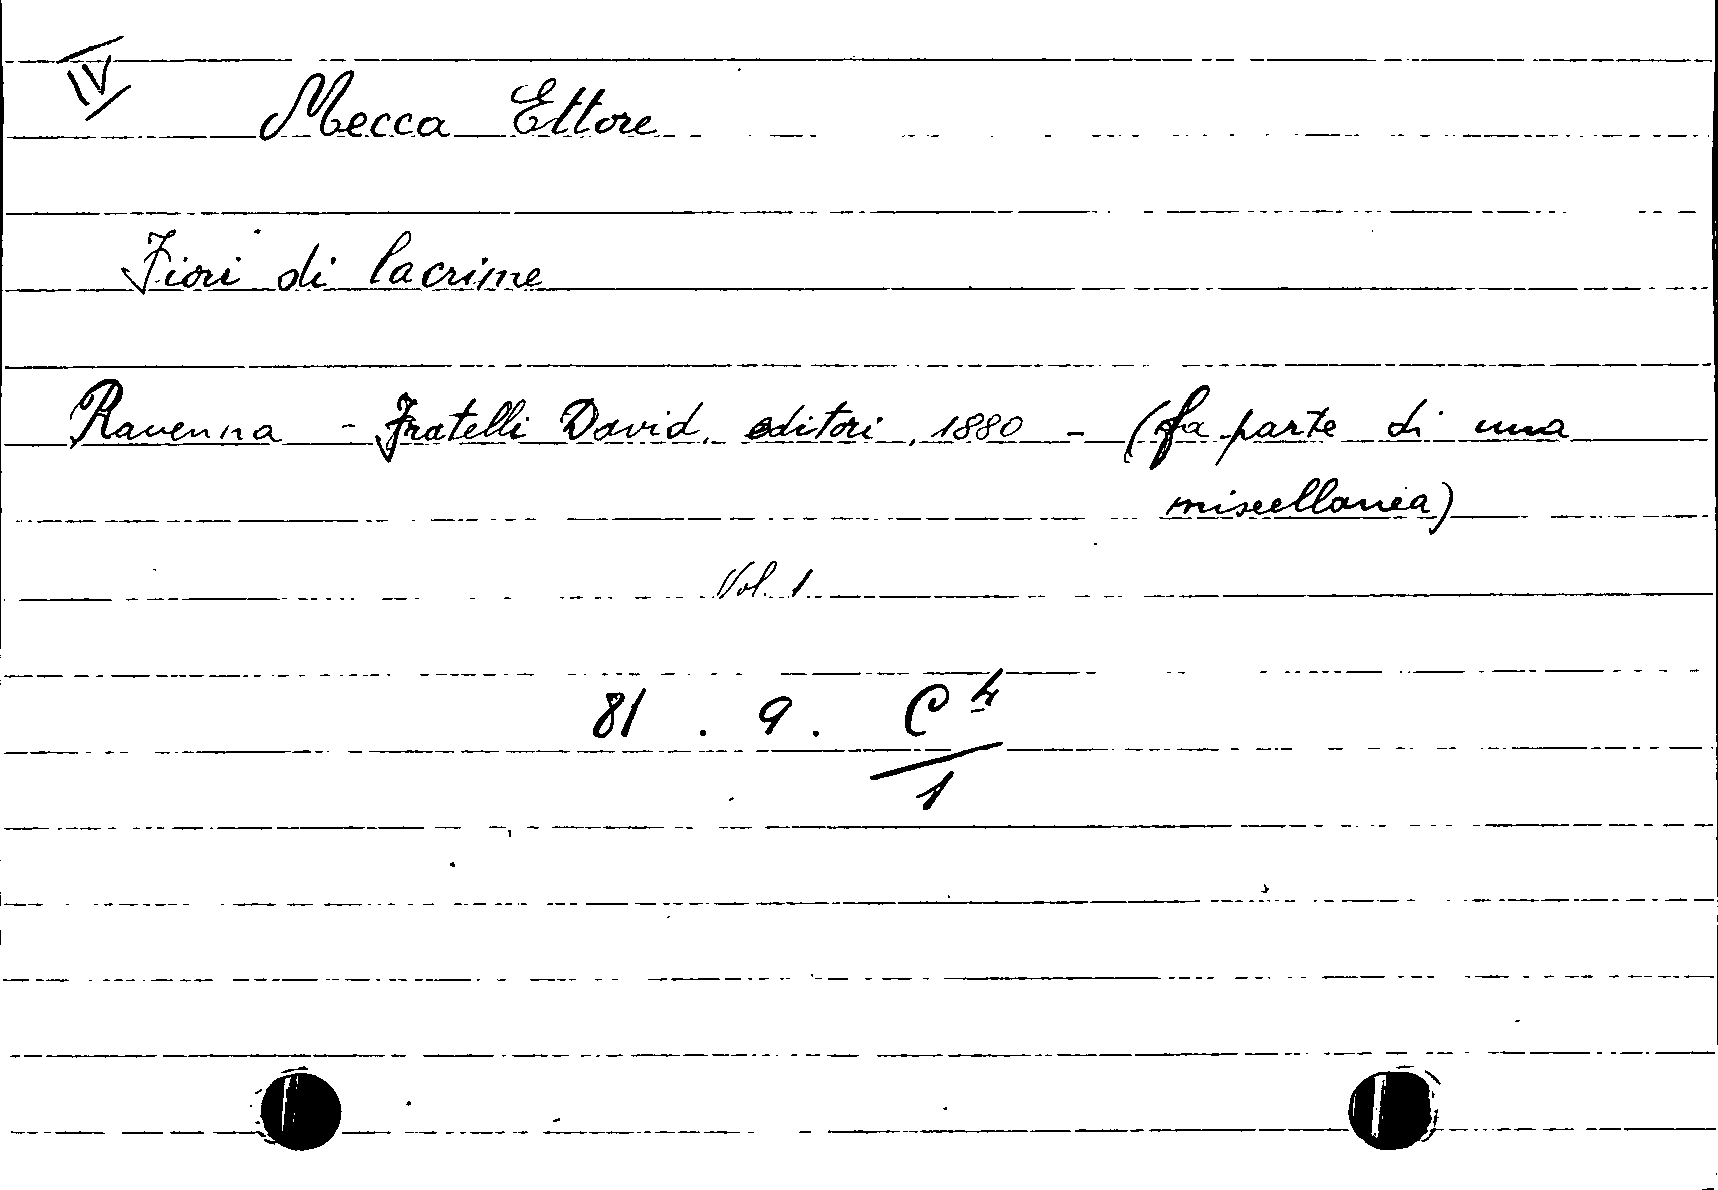 IV
Mecca Ettore
Fiori di lacrime
Ravenna - Fratelli David, editori, 1880 - (fa parte di una
miscellanea)
Vol. 1
81 . 9 . C 4
1